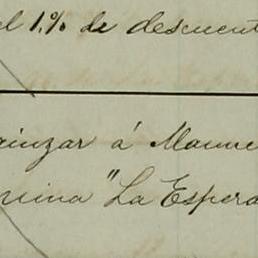 el 1% de descuent
ainzar á Manue
quina "La Espera